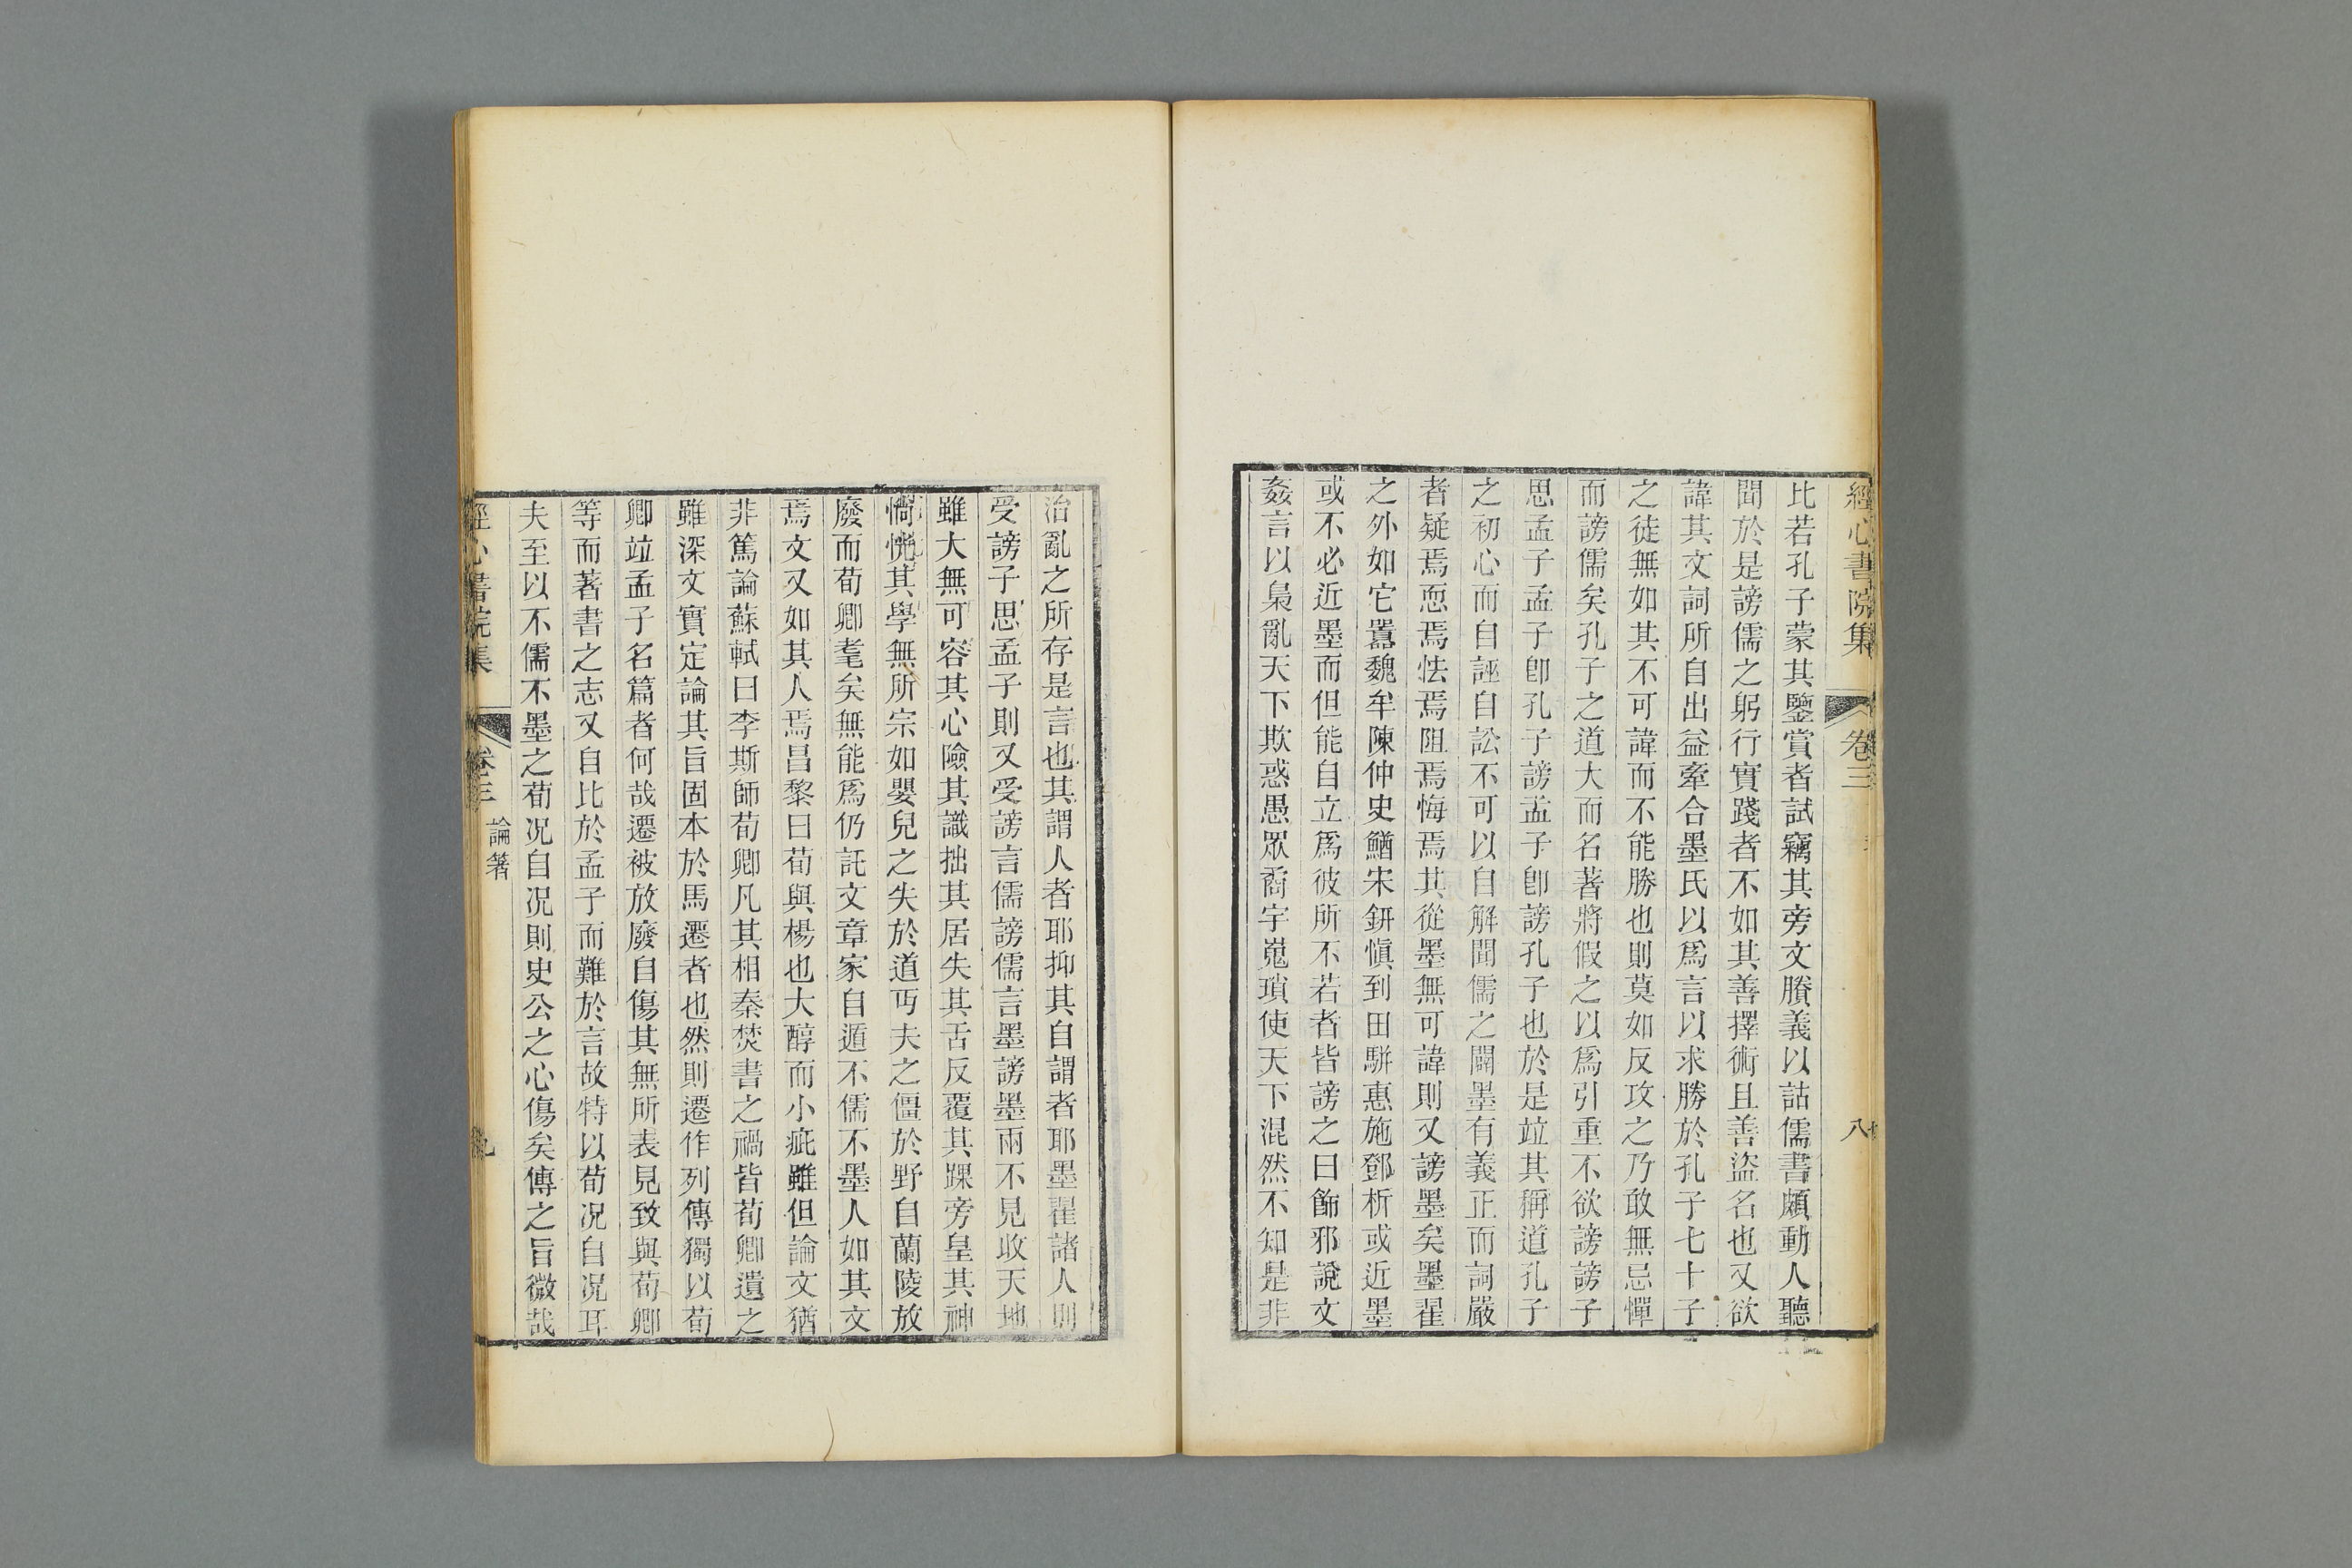 經心書院集 卷三 八
比若孔子蒙其鑒賞者試竊其旁文賸義以詁儒書頗動人聽
聞於是謗儒之躬行實踐者不如其善擇術且善盜名也又欲
諱其文詞所自出益牽合墨氏以爲言以求勝於孔子七十子
之徒無如其不可諱而不能勝也則莫如反攻之乃敢無忌憚
而謗儒矣孔子之道大而名著將假之以爲引重不欲謗謗子
思孟子孟子卽孔子謗孟子卽謗孔子也於是竝其稱道孔子
之初心而自誣自訟不可以自解聞儒之闢墨有義正而詞嚴
者疑焉恧焉怯焉阻焉悔焉其從墨無可諱則又謗墨矣墨翟
之外如它囂魏牟陳仲史鰌宋鈃愼到田駢惠施鄧析或近墨
或不必近墨而但能自立爲彼所不若者皆謗之曰飾邪說文
姦言以梟亂天下欺惑愚眾矞宇嵬瑣使天下混然不知是非
治亂之所存是言也其謂人者耶抑其自謂者耶墨翟諸人則
受謗子思孟子則又受謗言儒謗儒言墨謗墨兩不見收天地
雖大無可容其心險其識拙其居失其舌反覆其踝旁皇其神
惝恍其學無所宗如嬰兒之失於道丐夫之僵於野自蘭陵放
廢而荀卿耄矣無能爲仍託文章家自遁不儒不墨人如其文
焉文又如其人焉昌黎曰荀與楊也大醇而小疵雖但論文猶
非篤論蘇軾曰李斯師荀卿凡其相秦焚書之禍皆荀卿遺之
雖深文實定論其旨固本於馬遷者也然則遷作列傳獨以荀
卿竝孟子名篇者何哉遷被放廢自傷其無所表見致與荀卿
等而著書之志又自比於孟子而難於言故特以荀況自況耳
夫至以不儒不墨之荀況自況則史公之心傷矣傳之旨微哉
經心書院集 卷三 論箸 九